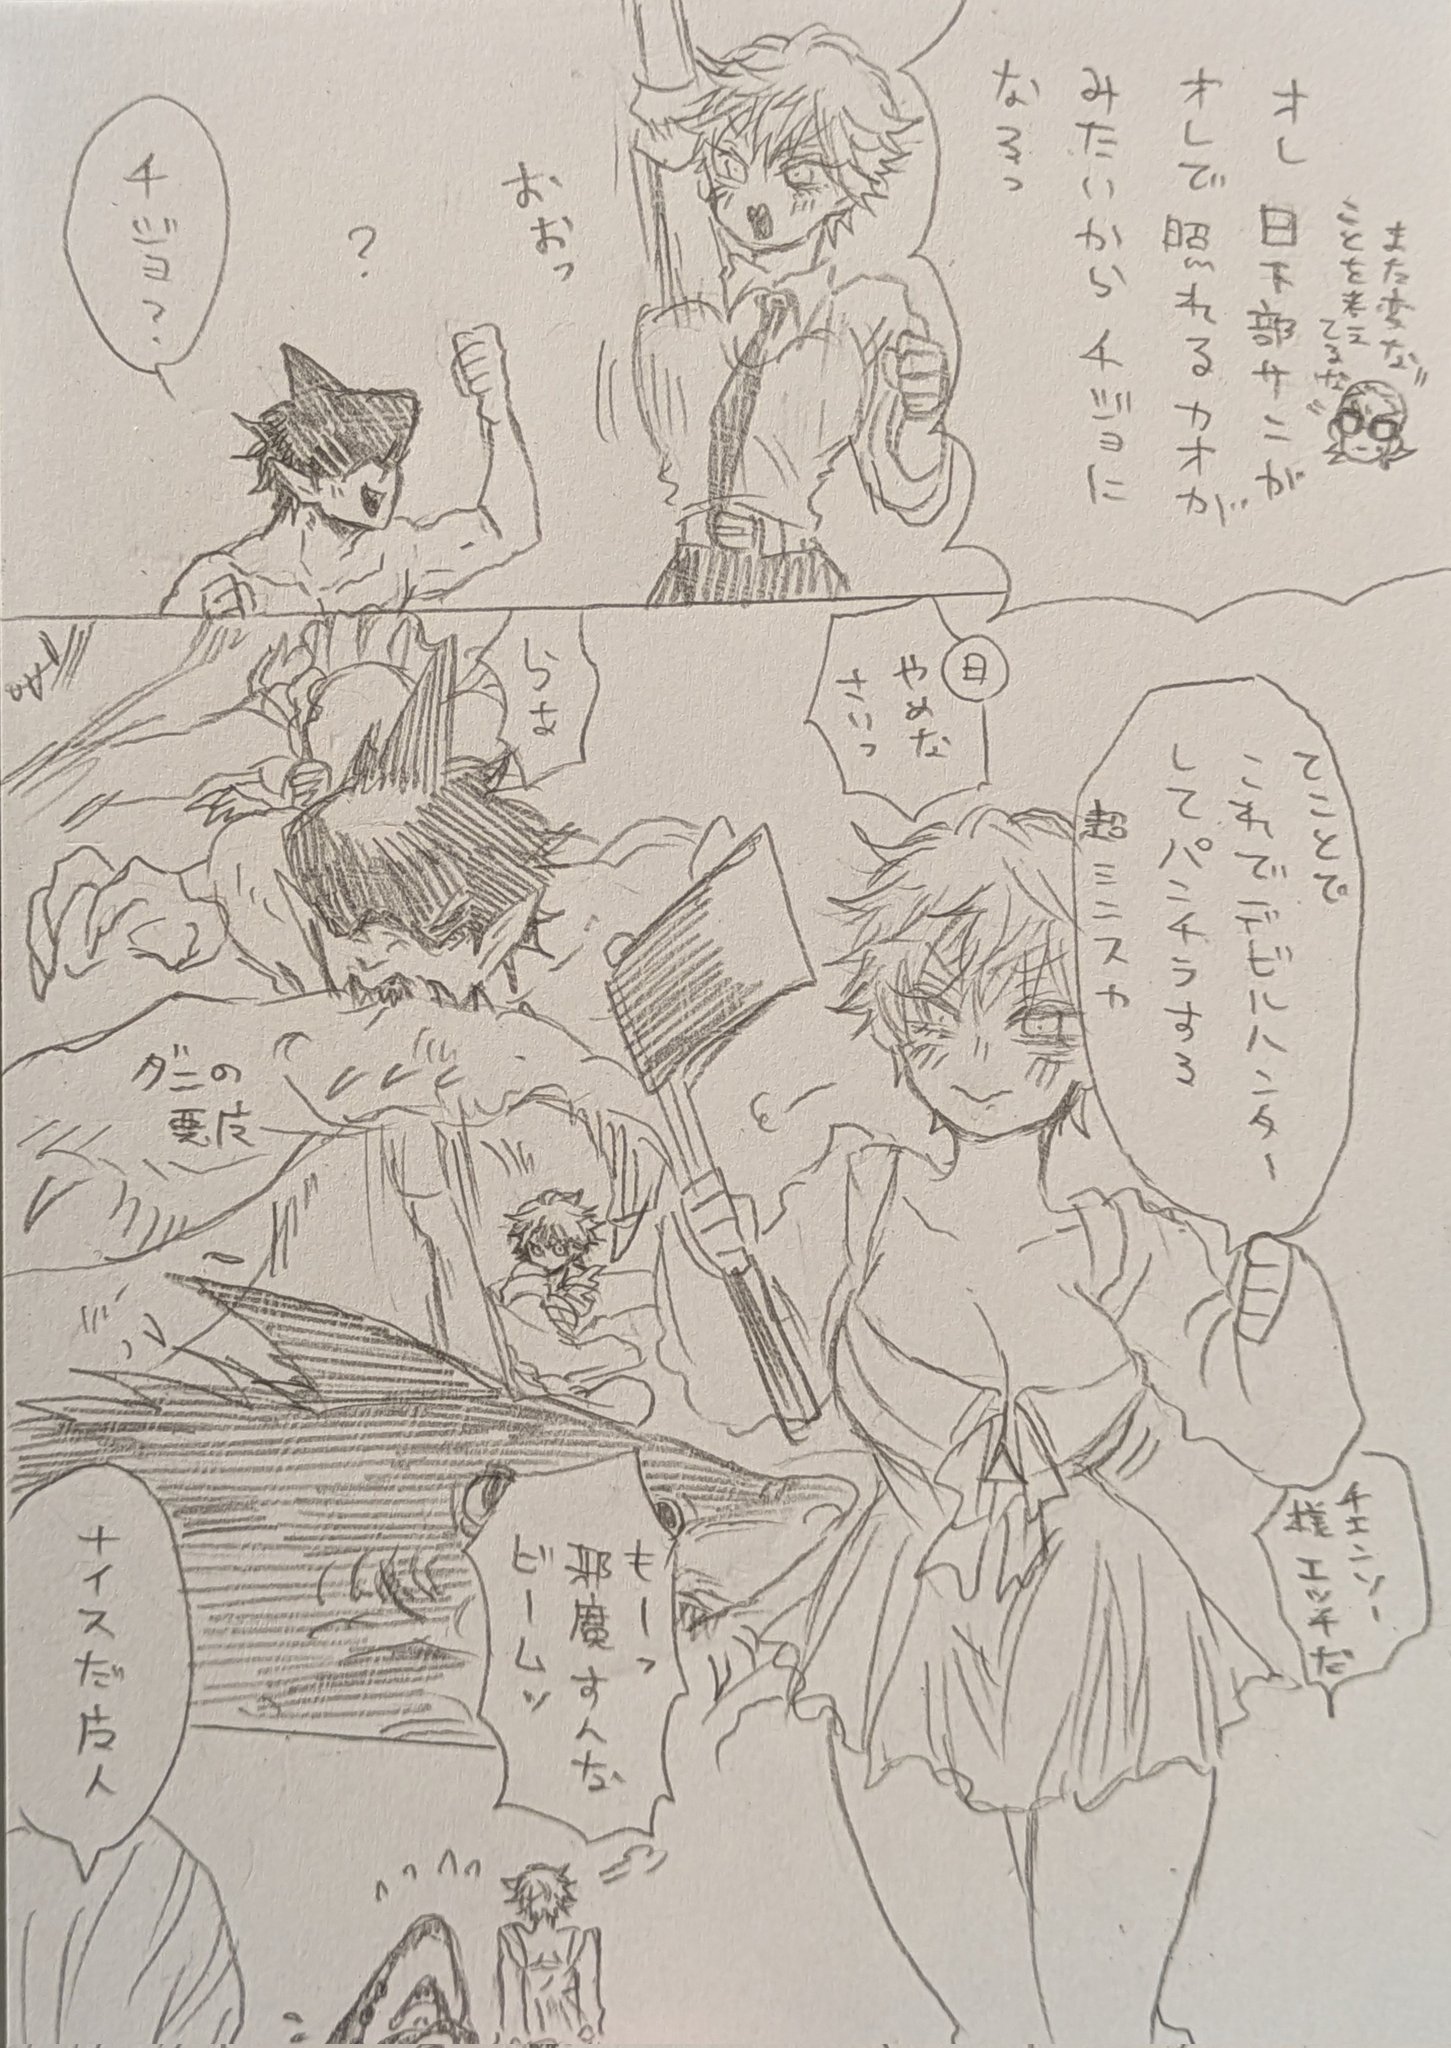 オレ 日下部サンが
オレで照れるカオが
みたいから チジョに
なるっ
また変な
ことを考え
てるな
おおっ
?
チジョ?
てことで
これでデビルハンター
してパンチラする
超ミニスカ
日
やめな
さいっ
らさ
ダニの
悪皮
チェンソー
様エッチだ
もーっ
邪魔すんな
ビームッ
ナイスだ皮人